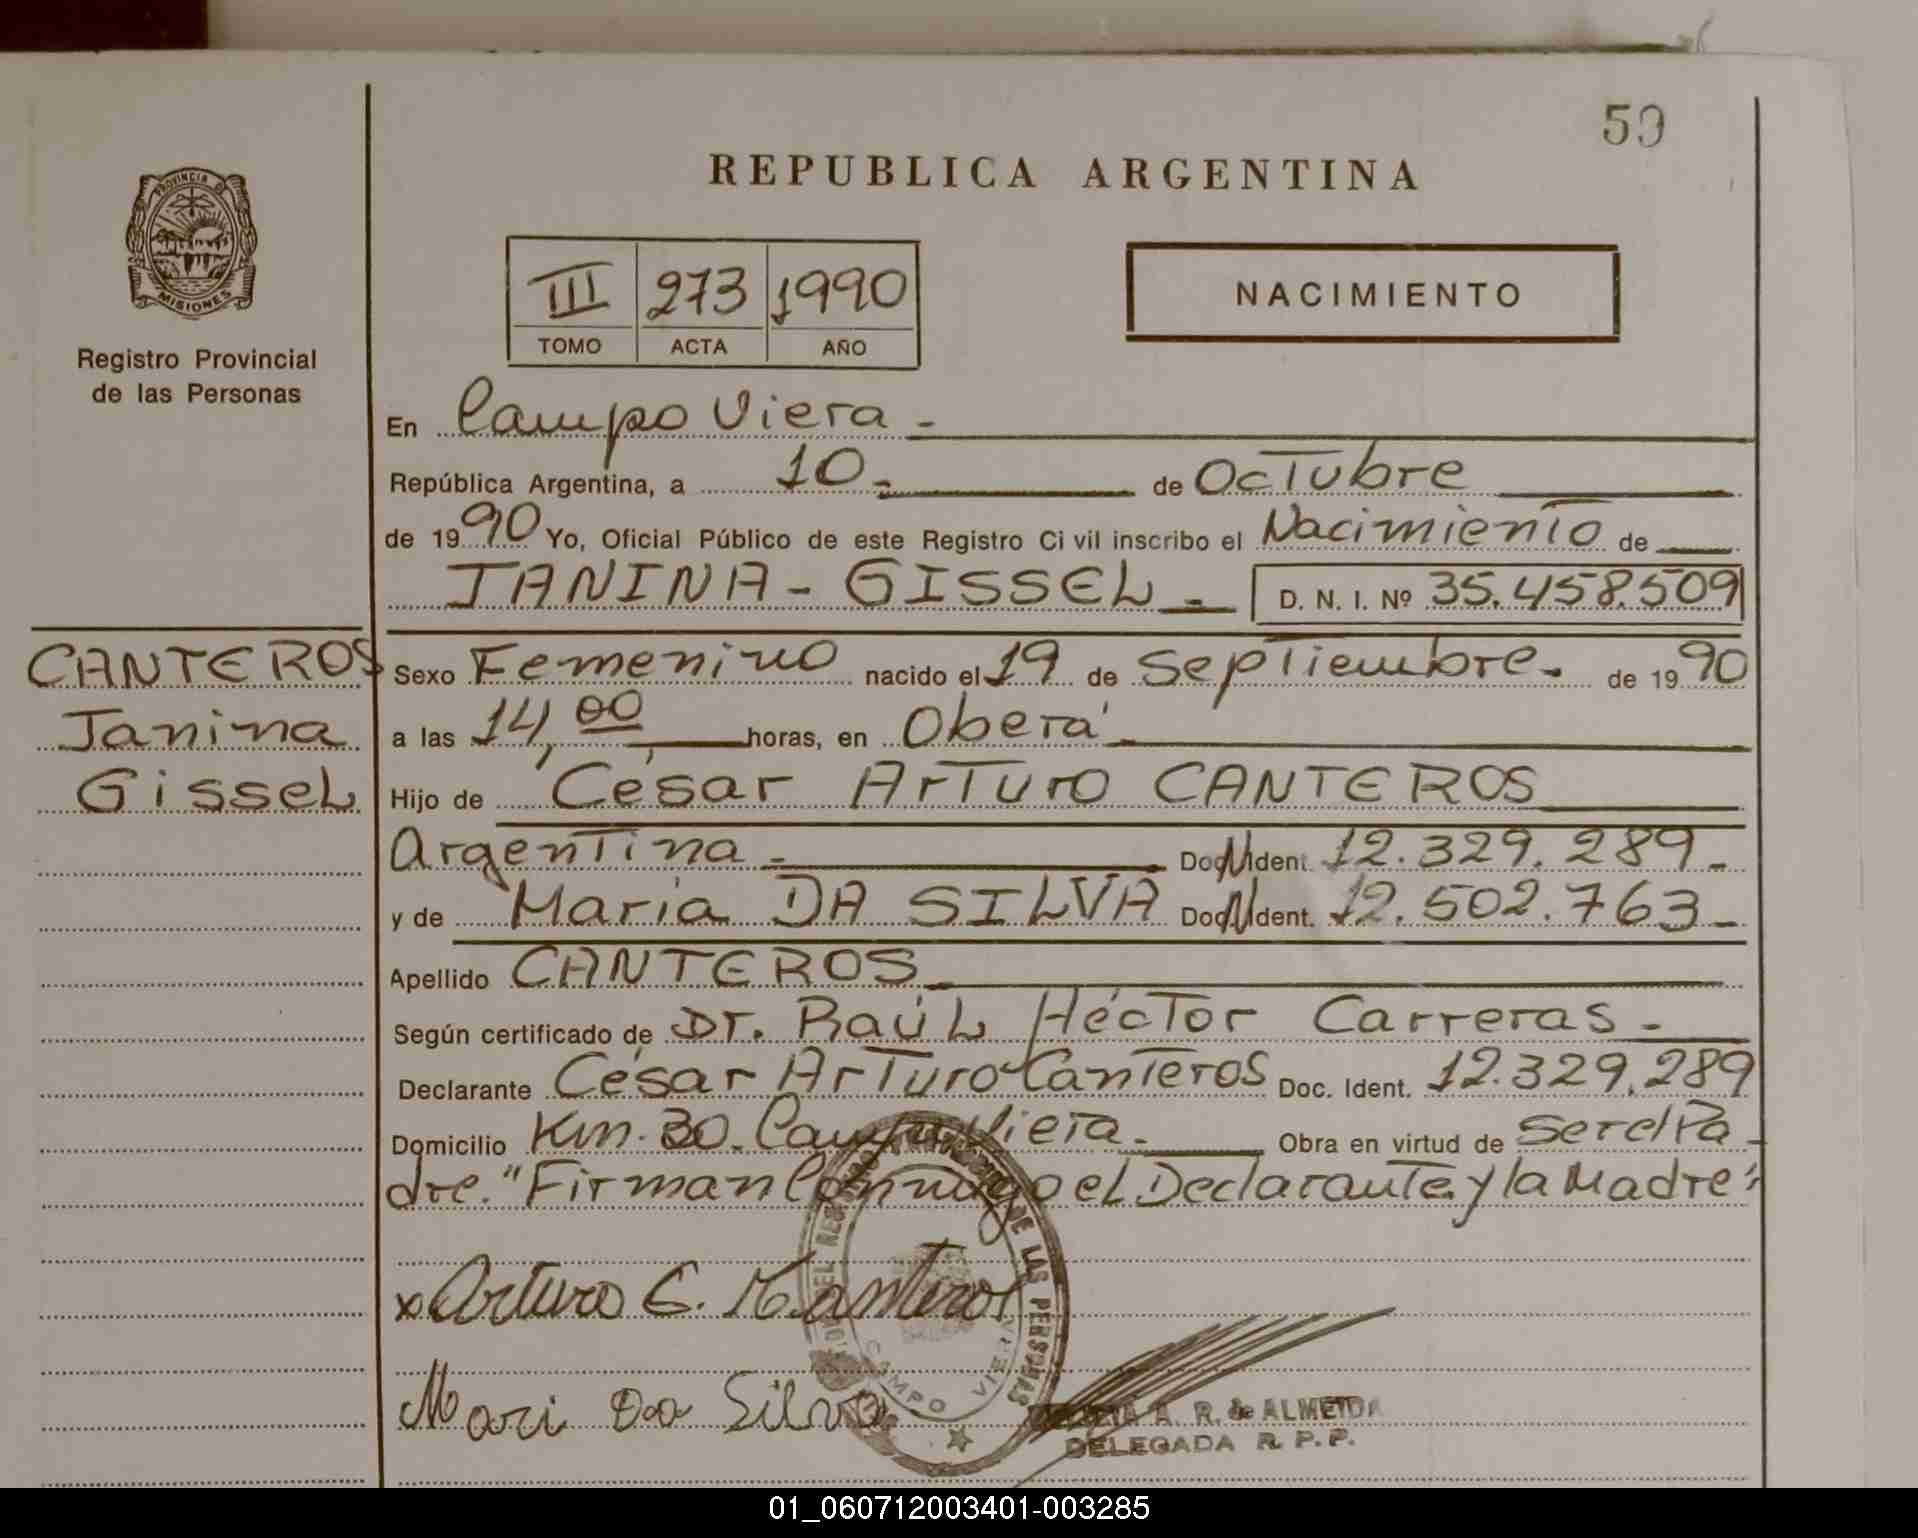 59
REPUBLICA ARGENTINA
PROVINCIA DE
MISIONES
Registro Provincial
de las Personas
III 273 1990
TOMO ACTA AÑO
NACIMIENTO
En Campo Viera -
República Argentina, a 10 - de Octubre
de 1990 Yo, Oficial Público de este Registro Civil inscribo el Nacimiento de
JANINA - GISSEL - D. N. I. Nº 35.458.509
CANTEROS
Janina
Gissel
Sexo Femenino nacido el 19 de Septiembre - de 1990
a las 14,00 horas, en Oberá -
Hijo de César Arturo CANTEROS
Argentina - Doc. Ident. 12.329.289 -
y de María DA SILVA Doc. Ident. 12.502.763 -
Apellido CANTEROS
Según certificado de Dr. Raúl Héctor Carreras -
Declarante César Arturo Canteros Doc. Ident. 12.329.289
Domicilio Km. 30 - Campo Viera - Obra en virtud de ser el Pa-
dre. "Firman Conmigo el Declarante y la Madre"
x Arturo C. Kanteros
Mari Da Silva
DE LAS PERSONAS
CAMPO VIERA
A. R. de ALMEIDA
DELEGADA R. P. P.
01_060712003401-003285